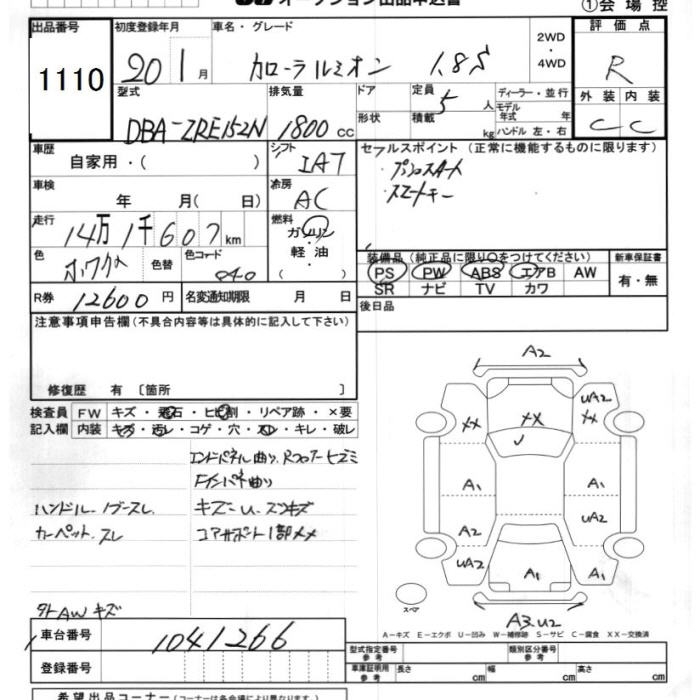 オークション出品申込書
①会場控
出品番号 初度登録年月 車名・グレード 2WD・4WD 評価点
1110 20 1月 カローラルミオン 1.8S R
型式 排気量 ドア 定員 5人 ディーラー・並行 外装 内装
DBA-ZRE152N 1800cc 形状 積載 kg モデル年式 年 ハンドル 左・右 C C
車歴 シフト セールスポイント (正常に機能するものに限ります)
自家用・( ) IAT プッシュスタート
車検 冷房 スマートキー
年 月( 日) AC
走行 燃料
14万1千607km ガソリン・軽油( )
色 色替 色コード 装備品(純正品に限り○をつけてください) 新車保証書
040 PS PW ABS エアB AW 有・無
R券 12600円 名変通知期限 月 日 SR ナビ TV カワ
後日品
注意事項申告欄(不具合内容等は具体的に記入して下さい)
修復歴 有 〔箇所 〕
検査員 FW キズ・飛石・ヒビ割・リペア跡・×要
記入欄 内装 キズ・汚レ・コゲ・穴・スレ・キレ・破レ
エンドパネル曲り、Rフロアーヒズミ
Fインパネ曲り
ハンドル・ノブースレ キズーU.スリキズ
カーペット.スレ コアサポート1部メメ
外AWキズ
A2
UA2
XX XX XX
A1 A1
A2 UA2
UA2 A1 A1
スペア
A3.U2
A-キズ E-エクボ U-凹み W-補修跡 S-サビ C-腐食 XX-交換済
車台番号 1041266
登録番号
型式指定番号 参考 類別区分番号 参考
車庫証明用 参考 長さ cm 幅 cm 高さ cm
希望出品コーナー(コーナーは各会場により異なります。)